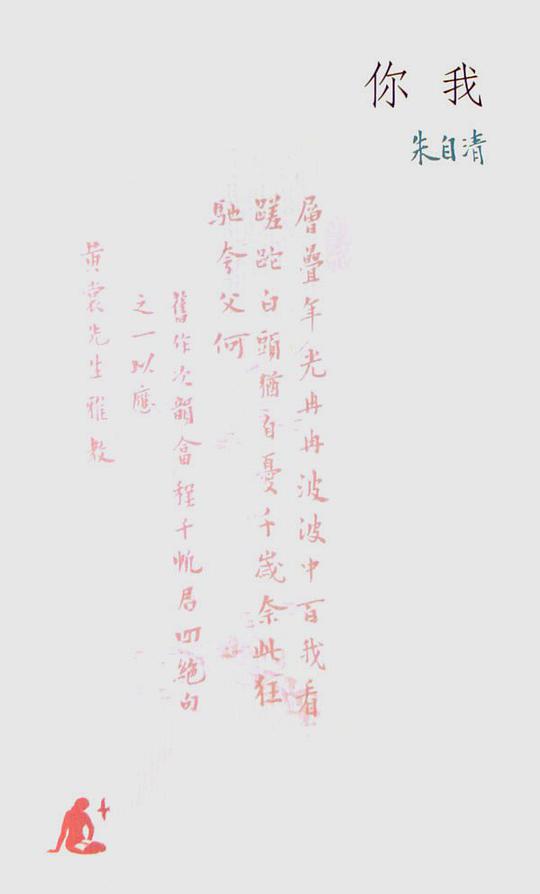 你 我
朱自清
層疊年光冉冉波波中百我看
蹉跎白頭猶自憂千歲奈此狂
馳夸父何
舊作次韻畣程千帆君四絕句
之一以應
黃裳先生雅教